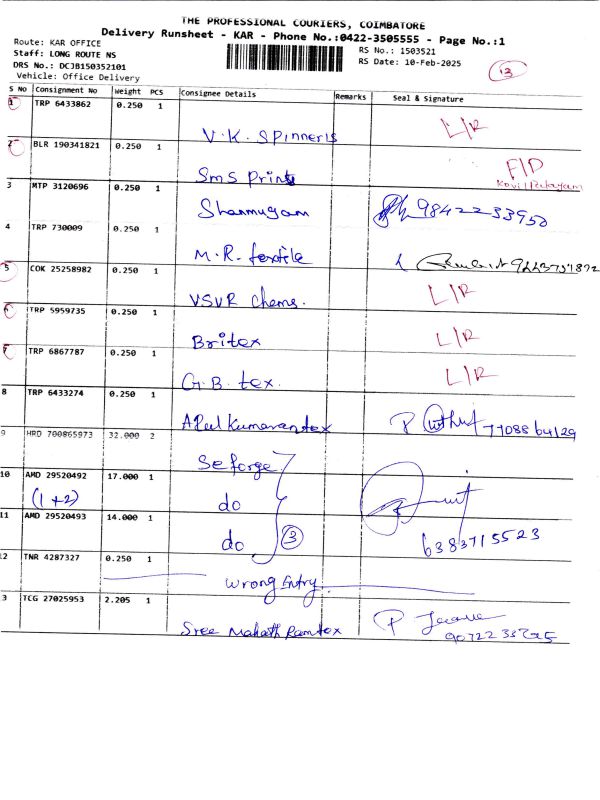 THE PROFESSIONAL COURIERS, COIMBATORE
Delivery Runsheet - KAR - Phone No.:0422-3505555 - Page No.:1
Route: KAR OFFICE
Staff: LONG ROUTE NS
RS No.: 1503521
DRS No.: DCJB150352101
RS Date: 10-Feb-2025
Vehicle: Office Delivery
13
S No Consignment No Weight PCS Consignee Details Remarks Seal & Signature
1 TRP 6433862 0.250 1 V.K. Spinners L/R
2 BLR 190341821 0.250 1 Sms prints F/D
3 MTP 3120696 0.250 1 Shanmugam 9842233950
4 TRP 730009 0.250 1 M.R. textile
5 COK 25258982 0.250 1 VSVR chems. L/R
6 TRP 5959735 0.250 1 Britex L/R
7 TRP 6867787 0.250 1 G.B. tex. L/R
8 TRP 6433274 0.250 1 7708864129
9 HRD 700865973 32.000 2 Seforge
10 AMD 29520492 17.000 1 do
(1+2)
11 AMD 29520493 14.000 1 do 3 6383715523
12 TNR 4287327 0.250 1 wrong Entry.
3 TCG 27025953 2.205 1 Sree